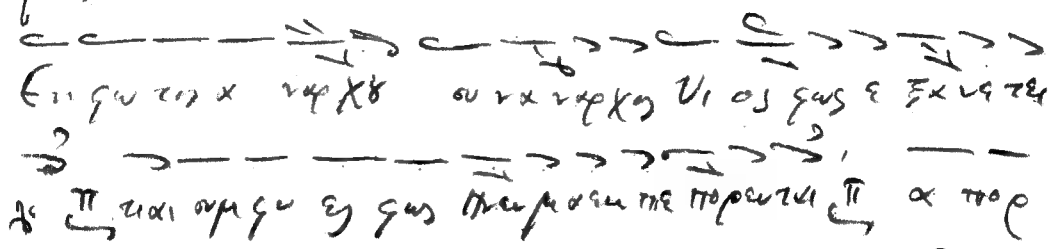 Εκ φωτος α ναρχȣ συναναρχος Υιος φως ε ξανετει
λε π και συμφυες φως Πνευμα εκ πε πορευται π α πορ